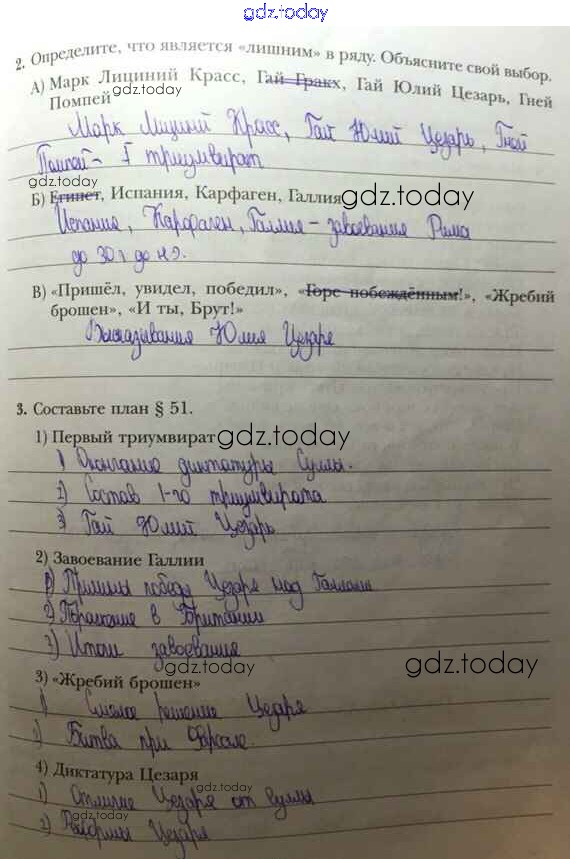 gdz.today
2. Определите, что является «лишним» в ряду. Объясните свой выбор.
А) Марк Лициний Красс, Гай Гракх, Гай Юлий Цезарь, Гней
Помпей gdz.today
Марк Лициний Красс, Гай Юлий Цезарь, Гней
Помпей – I триумвират
gdz.today
Б) Египет, Испания, Карфаген, Галлия gdz.today
Испания, Карфаген, Галлия – завоевания Рима
до 30 г до н.э.
В) «Пришёл, увидел, победил», «Горе побеждённым!», «Жребий
брошен», «И ты, Брут!»
Высказывания Юлия Цезаря
3. Составьте план § 51.
1) Первый триумвират gdz.today
1) Окончание диктатуры Суллы.
2) Состав 1-го триумвирата
3) Гай Юлий Цезарь
2) Завоевание Галлии
1) Причины победы Цезаря над Галлами
2) Поражение в Британии
3) Итоги завоевания
gdz.today gdz.today
3) «Жребий брошен»
1) Смелое решение Цезаря
2) Битва при Фарсале.
4) Диктатура Цезаря
gdz.today
1) Отличие Цезаря от Суллы
2) Реформы Цезаря
gdz.today